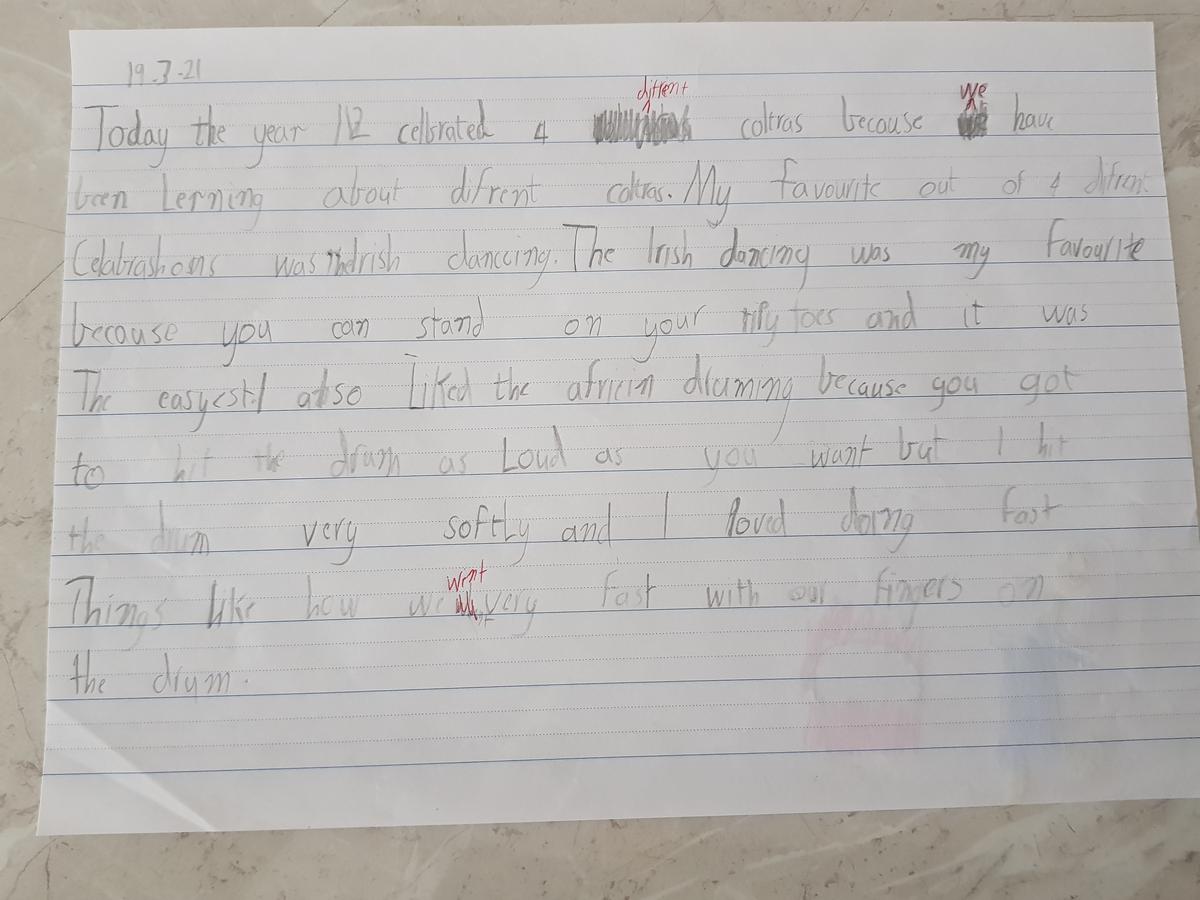 19-3-21
Today the year 1/2 celbrated 4 difrent coltras because we have
been Lerning about difrent coltras. My favourite out of 4 difrent
Celabrashons was Irish dancing. The Irish dancing was my favourite
because you can stand on your tipy toes and it was
The easyest. I also Liked the africin druming because you got
to hit the drum as Loud as you want but I hit
the drum very softly and I loved doing fast
Things like how we went very fast with our fingers on
the drum.